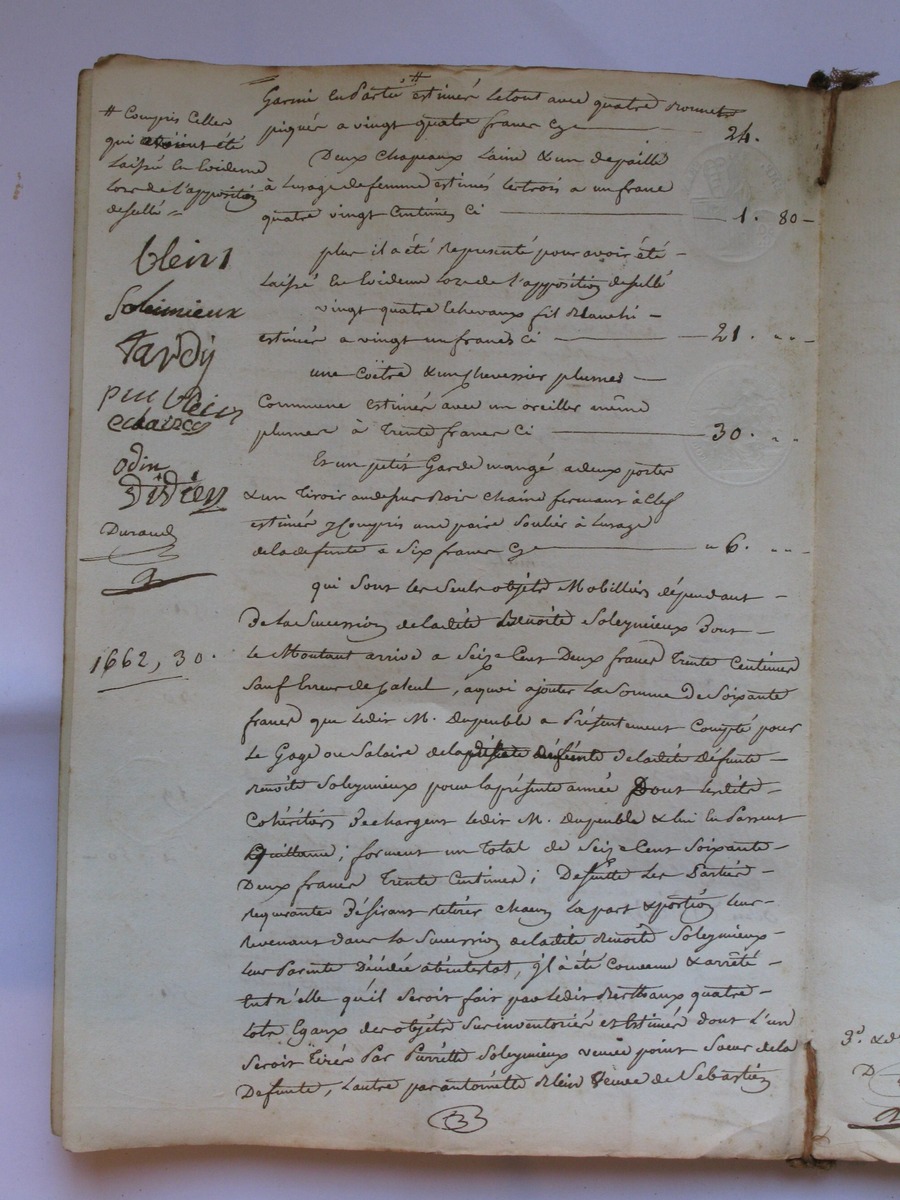 garni en partie # estimés le tout avec quatre bonnets
piqués a vingt quatre francs cy 24.
Deux chapeaux laine & un de paille
à lusage de femme estimés les trois a un franc
quatre vingt centimes ci 1. 80
# compris celles
qui avoient été
laissé en Evidence
lors de l'apposition
de scellé
plus il a été représenté pour avoir été
laissé en Evidence lors de l'apposition de scellé
vingt quatre Echevaux fil blanchi
estimés a vingt un francs ci 21. " "
une coëtre & un chevessier plumes
commune estimés avec un oreiller même
plumes à trente francs ci 30. " "
Et un petit garde mangé a deux portes
& un tiroir au dessus bois chaine fermant à clef
estimé y compris une paire soulier à lusage
de la defunte a six francs cy " 6. " "
blein
Soleimieux
tardy
blein
odin
didier
Durand
qui sont les seuls objets Mobilliers dépendant
De la Succession de ladite Benoite Soleymieux Dont
le Montant arrive a Seize Cent Deux francs trente Centimes
1662, 30.
Sauf Erreur de Calcul, aquoi ajouter la Somme De Soixante
francs que ledit M. Dupeuble a Présentement Compté pour
le Gage ou Salaire de la défunte de ladite Défunte
benoite Soleymieux pour la présente année Dont lesdits
Cohéritiers Dechargent ledit M. dupeuble & lui en Passent
Quittance; forment un total de Seize Cent Soixante
Deux francs trente Centimes; De suitte les Parties
requerantes Désirant retirer chacun la part & portion leur
revenant dans la Succession de ladite Benoite Soleymieux
leur Parente Décédée abintestat, il a été Convenu & arrêté
Entr'elle qu'il Seroit fait par ledit Berthaux quatre
lots Egaux des objets Sus inventoriés et Estimés dont L'un
Seroit tiré Par Pierrette Soleymieux veuve point Sœur de la
Defunte, L'autre par antoinette Blein Veuve de Sebastien
3
3.º